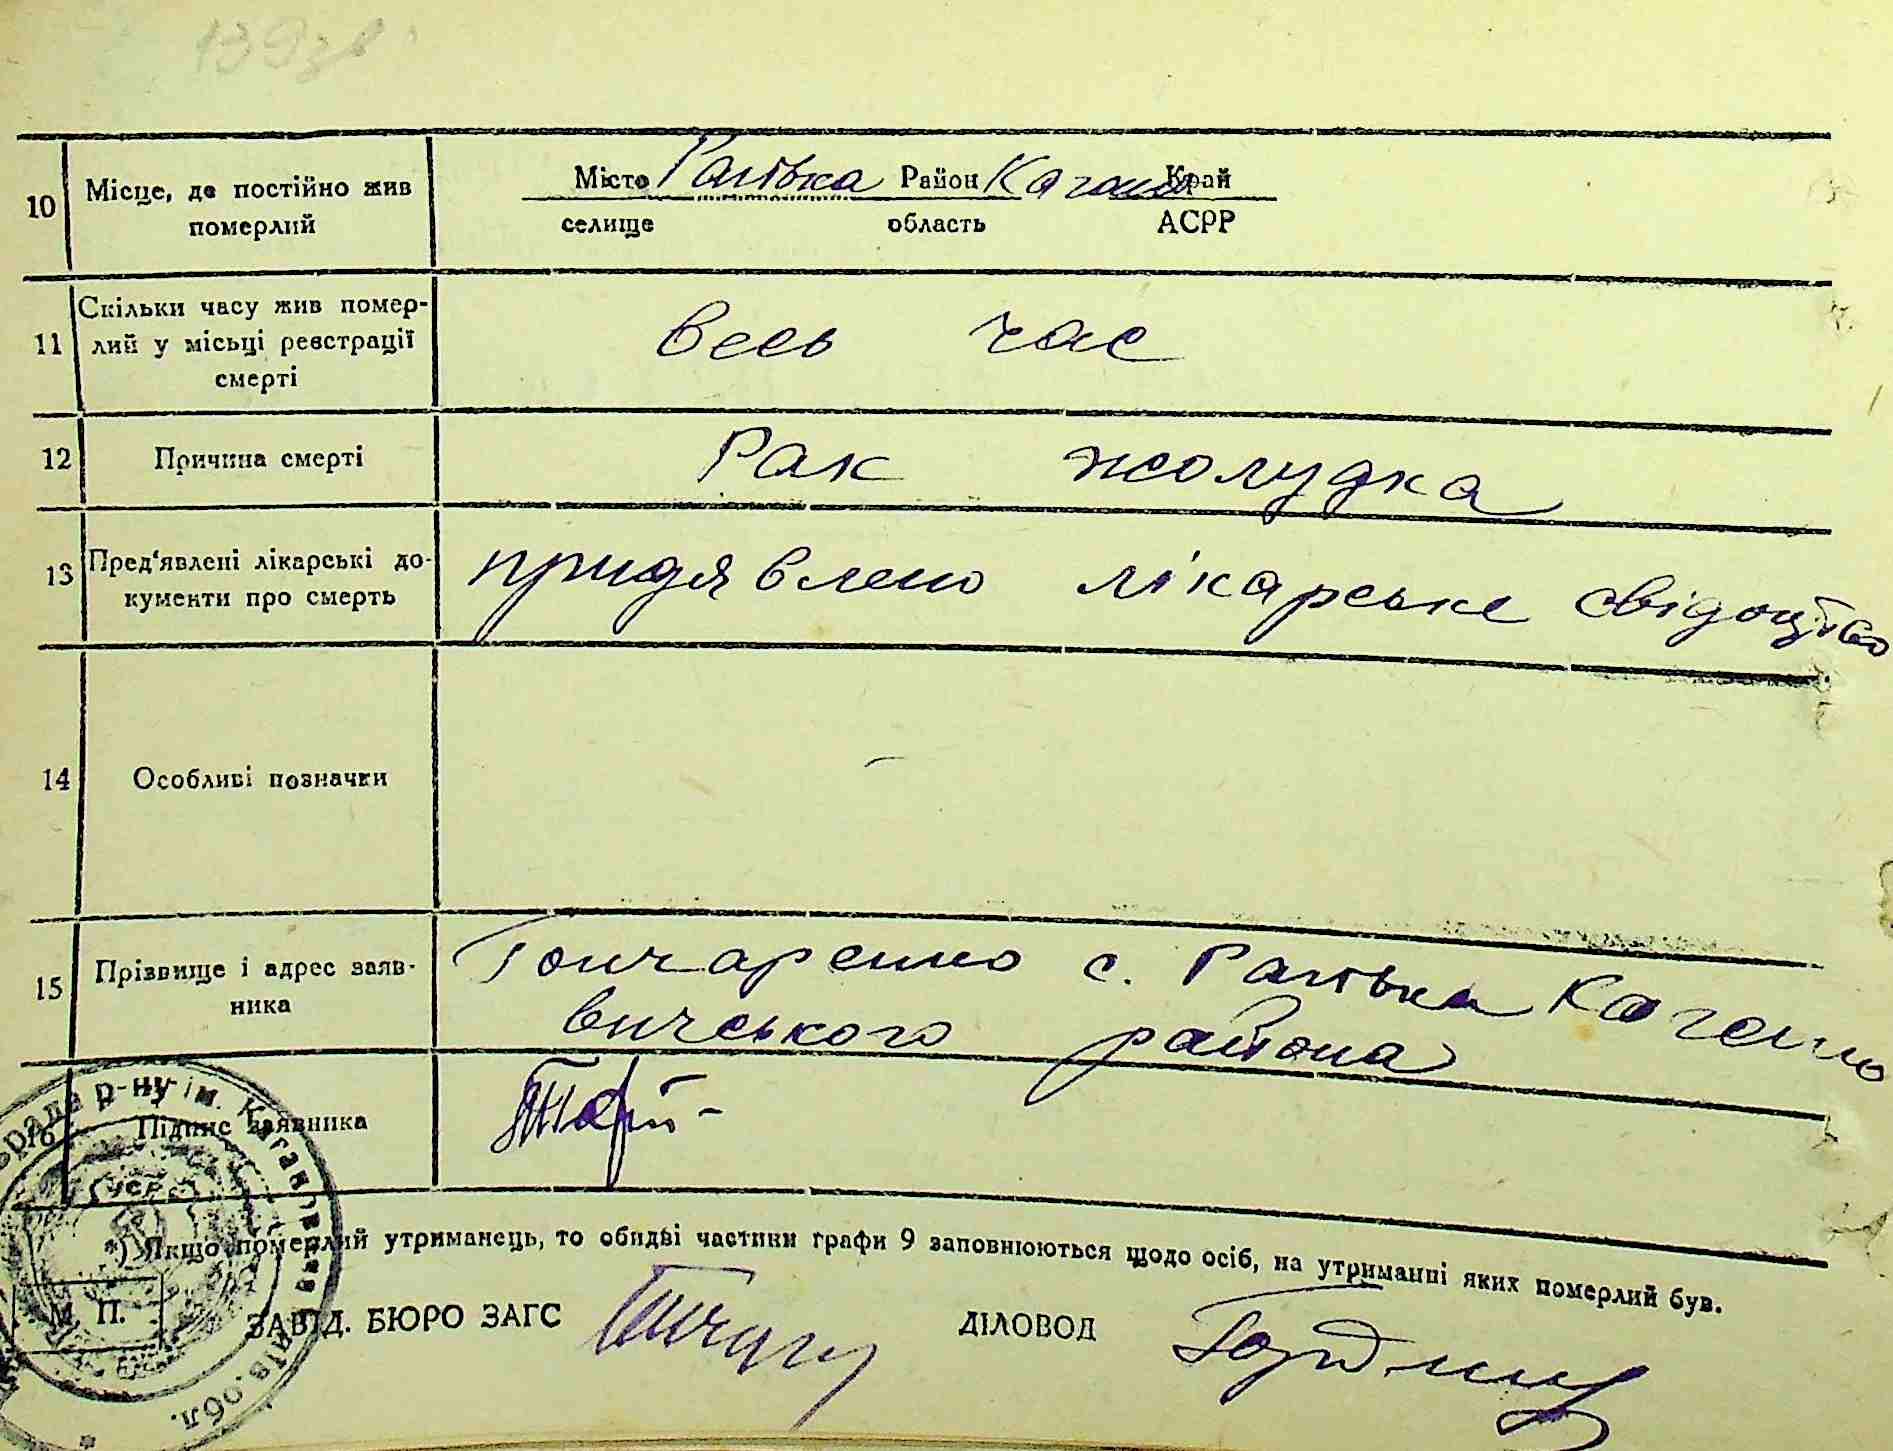 139зв
10 Місце, де постійно жив померлий
Місто Рагівка Район Кагано Край
селище область АСРР
11 Скільки часу жив помер-
лий у місьці реєстрації
смерті
весь час
12 Причина смерті Рак жолудка
13 Пред'явлені лікарські до-
кументи про смерть
придявлено лікарське свідоцтво
14 Особливі позначки —
15 Прізвище і адрес заяв-
ника
Гончаренко с. Рагівка Кагано
вичського района
16 Підпис заявника
*) Якщо померлий утриманець, то обидві частини графи 9 заповнюються щодо осіб, на утриманні яких померлий був.
М. П.
ЗАВІД. БЮРО ЗАГС ДІЛОВОД
р-ну ім. Кагановича
УСРР
обл.